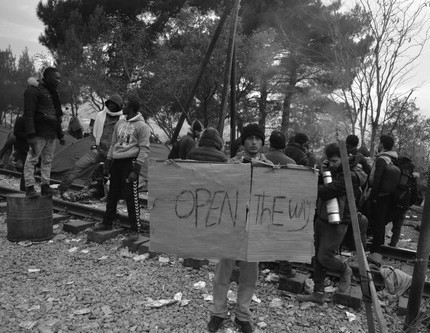 OPEN The WAY